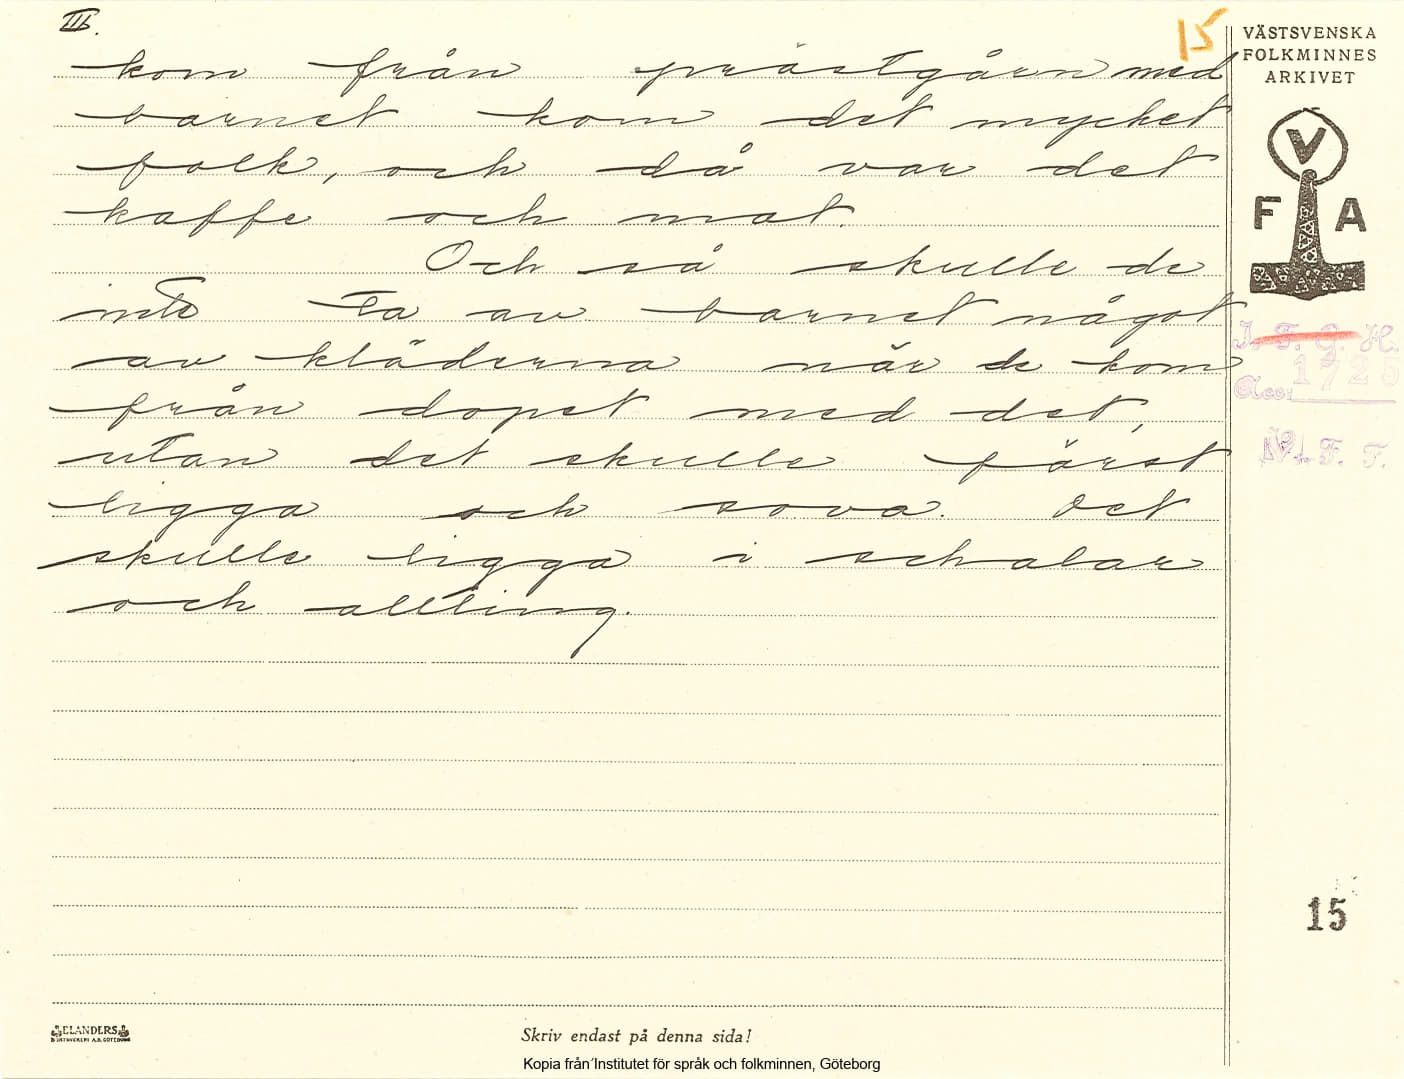 III.
15
VÄSTSVENSKA
FOLKMINNES
ARKIVET
kom från prästgårn med
barnet kom det mycket
folk, och då var det
kaffe och mat.
Och så skulle de
inte ta av barnet något
av kläderna när de kom
från dopet med det,
utan det skulle först
ligga och sova. Det
skulle ligga i schalar
och allting.
V
F A
I. F. G. H.
Acc: 1925
V. F. F.
15
ELANDERS
Skriv endast på denna sida!
Kopia från Institutet för språk och folkminnen, Göteborg